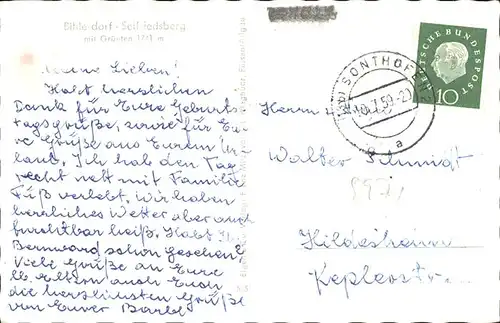 Bihlerdorf - Seifriedsberg
mit Grünten 1741 m
Meine Lieben!
Habt herzlichen
Dank für Eure Geburts-
tagsgrüße, sowie für Eu-
re Grüße aus Eurem Ur-
laub. Ich hab den Tag
recht nett mit Familie
Füß verlebt. Wir haben
herrliches Wetter aber auch
furchtbar heiß. Habt Ihr
Bernward schon gesehen?
Viele Grüße an Eure
lb. Eltern auch Euch
die herzlichsten Grüße
von Eurer Bärbel
SONTHOFEN
10.7.59-20
a
DEUTSCHE BUNDESPOST
10
Herrn
Walter Schmidt
Hildesheim
Keplerstr.